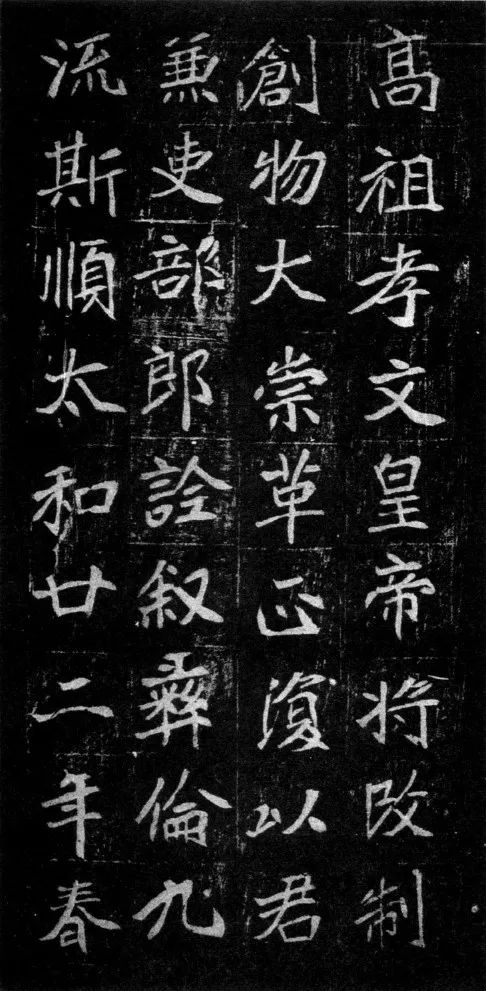 高祖孝文皇帝將改制
創物大崇革正復以君
兼吏部郎詮叙彝倫九
流斯順太和廿二年春